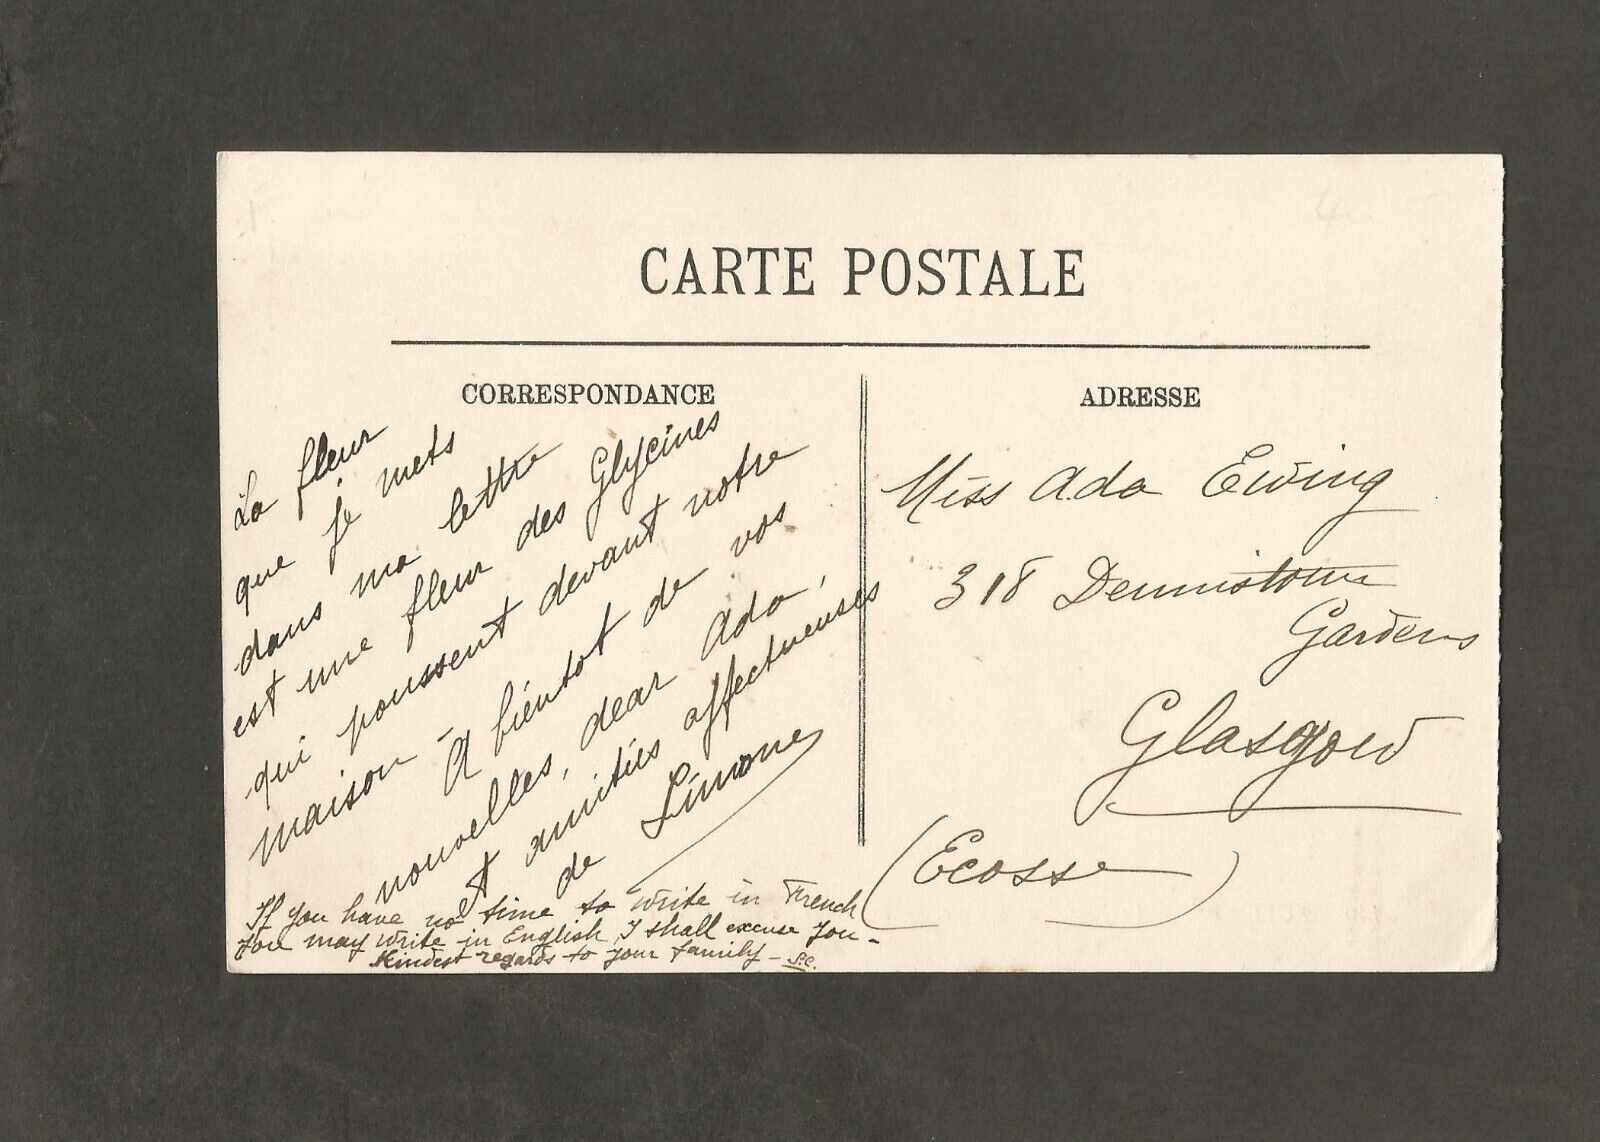 CARTE POSTALE
CORRESPONDANCE
La fleur
que je mets
dans ma lettre
est une fleur des Glycines
qui poussent devant notre
maison - A bientot de vos
nouvelles, dear Ada,
et amitiés affectueuses
de Simone
If you have no time to write in French
You may write in English, I shall excuse you -
Kindest regards to your family - S.C.
ADRESSE
Miss Ada Ewing
318 Dennistoun
Gardens
Glasgow
(Ecosse)